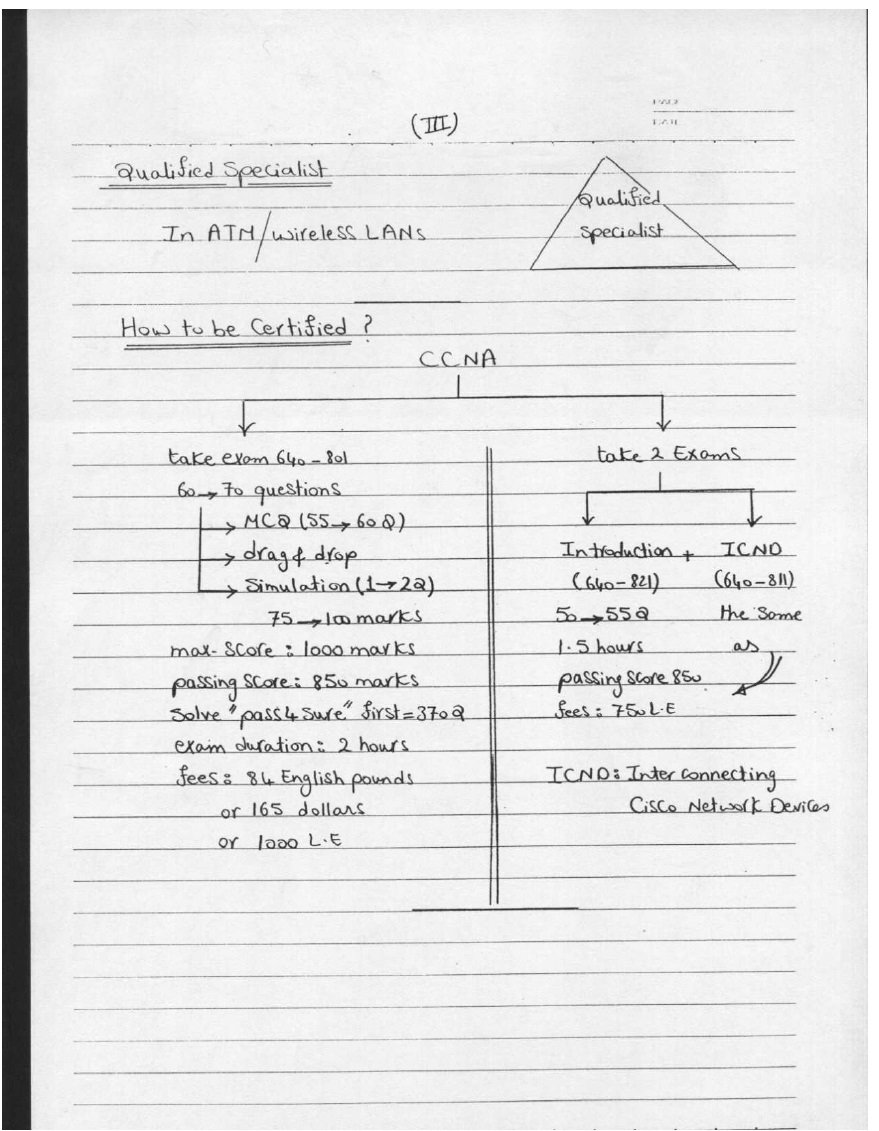 (III)
Qualified Specialist
In ATM/wireless LANs
Qualified
Specialist
How to be Certified ?
CCNA
take exam 640-801
60→70 questions
→ MCQ (55→60Q)
→ drag & drop
→ Simulation (1→2Q)
75→100 marks
max. Score : 1000 marks
passing Score : 850 marks
Solve "pass4sure" first=370Q
exam duration : 2 hours
fees : 84 English pounds
or 165 dollars
or 1000 L.E
take 2 Exams
Introduction + ICND
(640-821) (640-811)
50→55Q the Same
1.5 hours as
passing Score 850
fees : 750 L.E
ICND : Inter connecting
Cisco Network Devices